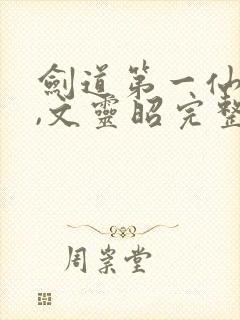 劍道第一仙
,文靈昭完整
周崇堂